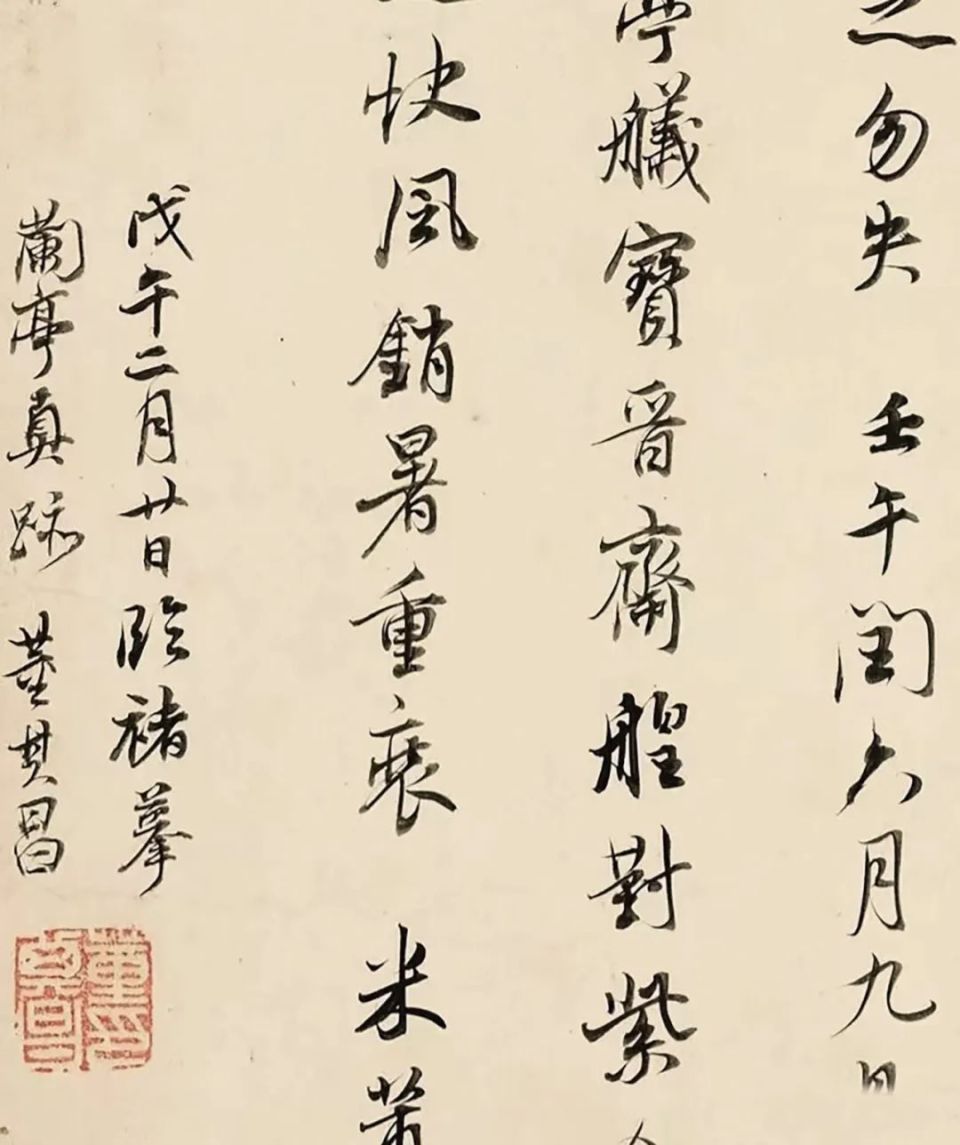 之勿失 壬午閏六月九日
亭艤寶晉齋艎對紫
快風銷暑重裝 米芾
戊午二月廿日臨褚摹
蘭亭真跡 董其昌